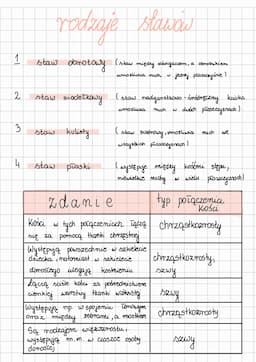 rodzaje stawów
1 staw obrotowy (staw między dźwigaczem, a obrotnikiem
umożliwia ruch w jednej płaszczyźnie)
2 staw siodełkowy (staw nadgarstkowo-śródręczny kciuka
umożliwia ruch w dwóch płaszczyznach)
3 staw kulisty (staw biodrowy, możliwia ruch we
wszystkich płaszczyznach)
4 staw płaski (występuje między kośćmi stępu,
niewielkie ruchy w wielu płaszczyznach)
zdanie typ połączenia
kości
Kości w tych połączeniach łączą
się za pomocą tkanki chrzęstnej chrząstkozrosty
Występują powszechnie w szkielecie
dziecka natomiast w szkielecie
dorosłego ulegają kostnieniu chrząstkozrosty,
szwy
Łączą ścisle kości za pośrednictwem
cienkiej warstwy tkanki włóknistej szwy
Występują np. w spojeniu łonowym
oraz między żebrami, a mostkiem chrząstkozrosty
Są rodzajem więzozrostu,
występują m.in. w czaszce osoby
dorosłej szwy